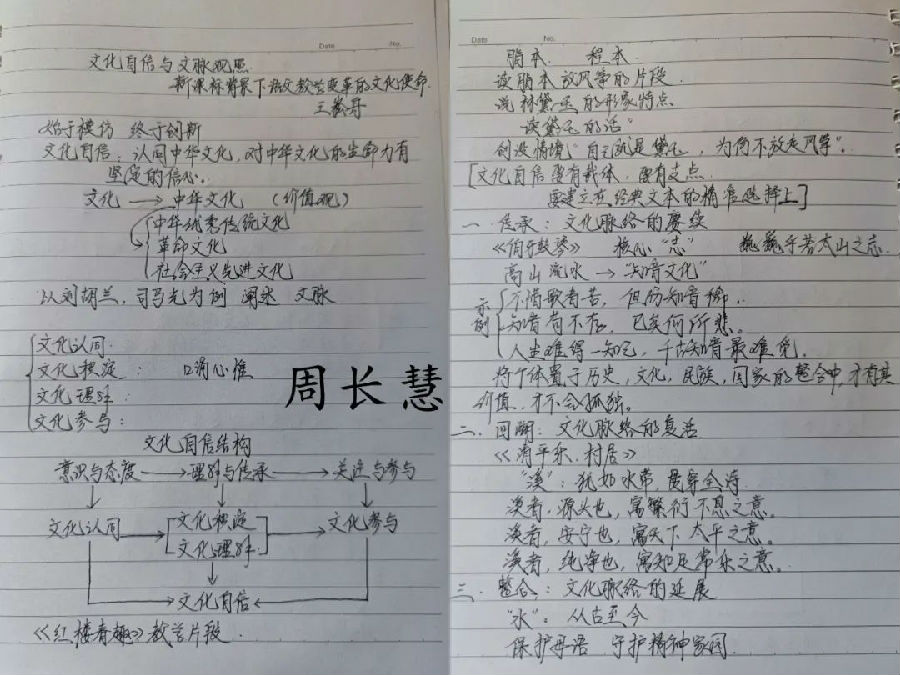 Date No.
文化自信与文脉观照
新课标背景下语文教学变革的文化使命
王崧舟
始于模仿 终于创新
文化自信：认同中华文化，对中华文化的生命力有
坚定的信心。
文化 → 中华文化 （价值观）
中华优秀传统文化
革命文化
社会主义先进文化
以刘胡兰，司马光为例 阐述 文脉
文化认同：
文化积淀： 口诵心惟
文化理解：
文化参与：
周长慧
文化自信结构
意识与态度 → 理解与传承 → 关注与参与
文化认同 → 文化积淀 → 文化参与
文化理解
→ 文化自信 ←
《红楼春趣》教学片段．
Date No.
脂本 程本
读脂本放风筝的片段
说林黛玉的形象特点
读黛玉的话"
创设情境"自己就是黛玉，为何不放走风筝"。
[文化自信要有载体，要有支点
要建立在经典文本的精准选择上]
一．传承：文化脉络的赓续
《伯牙鼓琴》 核心"志" 巍巍乎若太山之志．
高山流水 → "知音文化"
示例
不惜歌者苦，但伤知音稀．
知音苟不存，已矣何所悲。
人生难得一知己，千古知音最难觅．
将个体置于历史，文化，民族，国家的整合中，才有其
价值，才不会孤独。
二．回溯：文化脉络的复活
《清平乐．村居》
"溪"：犹如水带，贯穿全诗
溪者，源头也，寓繁衍不息之意。
溪者，安宁也，寓天下太平之意．
溪者，纯净也，寓知足常乐之意。
三．整合：文化脉络的延展
"水"：从古至今
保护母语 守护精神家园